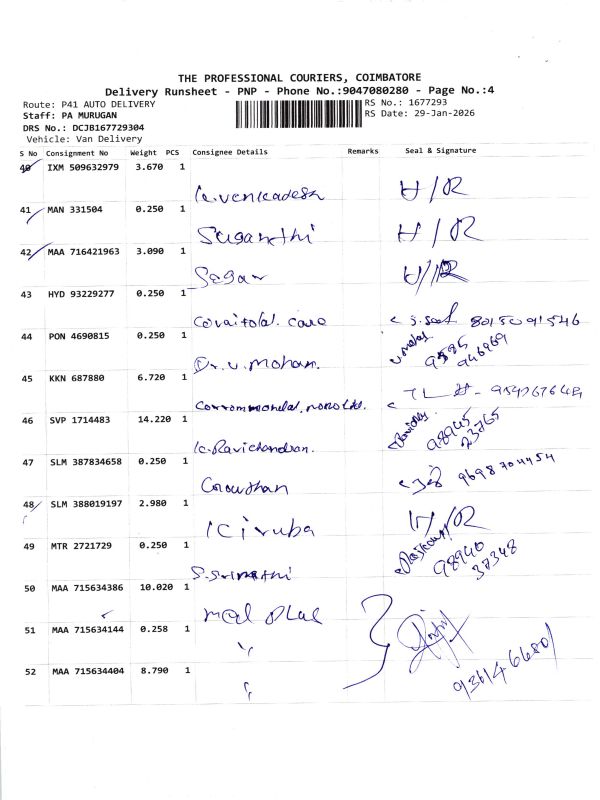 THE PROFESSIONAL COURIERS, COIMBATORE
Delivery Runsheet - PNP - Phone No.:9047080280 - Page No.:4
Route: P41 AUTO DELIVERY
RS No.: 1677293
Staff: PA MURUGAN
RS Date: 29-Jan-2026
DRS No.: DCJB167729304
Vehicle: Van Delivery
S No Consignment No Weight PCS Consignee Details Remarks Seal & Signature
40 IXM 509632979 3.670 1
K.Venkadesh H/R
41 MAN 331504 0.250 1
Suganthi H/R
42 MAA 716421963 3.090 1
Sagar H/R
43 HYD 93229277 0.250 1
8015091546
44 PON 4690815 0.250 1
Dr. v. Mohan.
45 KKN 687880 6.720 1
46 SVP 1714483 14.220 1
K.Ravichandran. 98945 23765
47 SLM 387834658 0.250 1
Gowthan 9698704454
48 SLM 388019197 2.980 1
Kiruba H/R
49 MTR 2721729 0.250 1
S.Srimathi 98940 37348
50 MAA 715634386 10.020 1
Med Plus
51 MAA 715634144 0.258 1
52 MAA 715634404 8.790 1